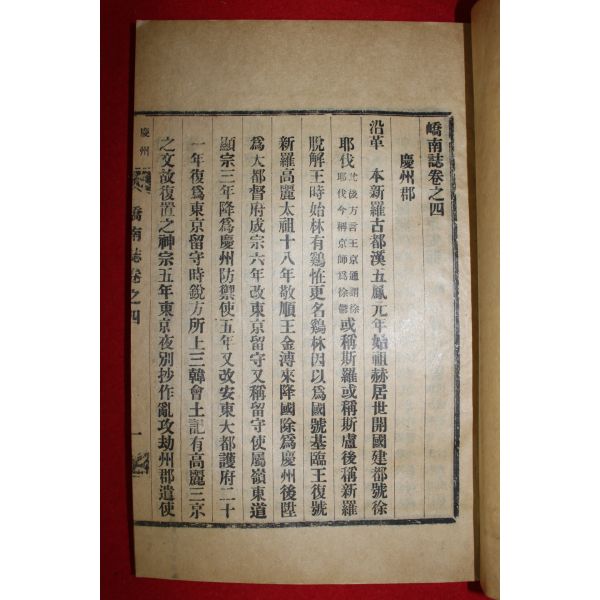 嶠南誌卷之四
慶州郡
沿革 本新羅古都漢五鳳元年始祖赫居世開國建都號徐
耶伐 其後方言王京通謂徐耶伐今稱京師爲徐鬱 或稱斯羅或稱斯盧後稱新羅
脫解王時始林有鷄恠更名鷄林因以爲國號基臨王復號
新羅高麗太祖十八年敬順王金溥來降國除爲慶州後陞
爲大都督府成宗六年改東京留守又稱留守使屬嶺東道
顯宗三年降爲慶州防禦使五年又改安東大都護府二十
一年復爲東京留守時銳方所上三韓會土記有高麗三京
之文故復置之神宗五年東京夜別抄作亂攻劫州郡遣使
慶州
嶠南誌卷之四
一